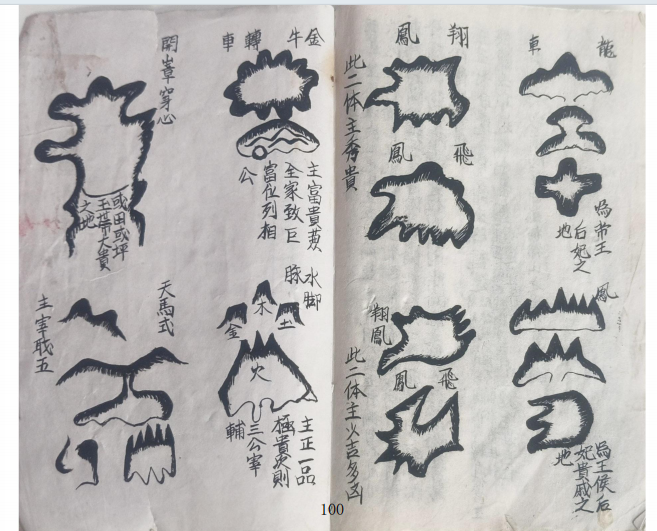 龍
車
為帝王
后妃之
地
鳳
為王侯后
妃貴戚之
地
翔
鳳
飛
鳳
此二体主秀貴
翔
鳳
飛
鳳
此二体主火吉多凶
金
牛
轉
車
主富貴
全家致巨
富位列相
公
水脚
木
土
金
火
主正一品
極貴次則
三公宰
輔
開嶂穿心
或田或坪
玉帶大貴
之地
天馬式
主宰職五
100